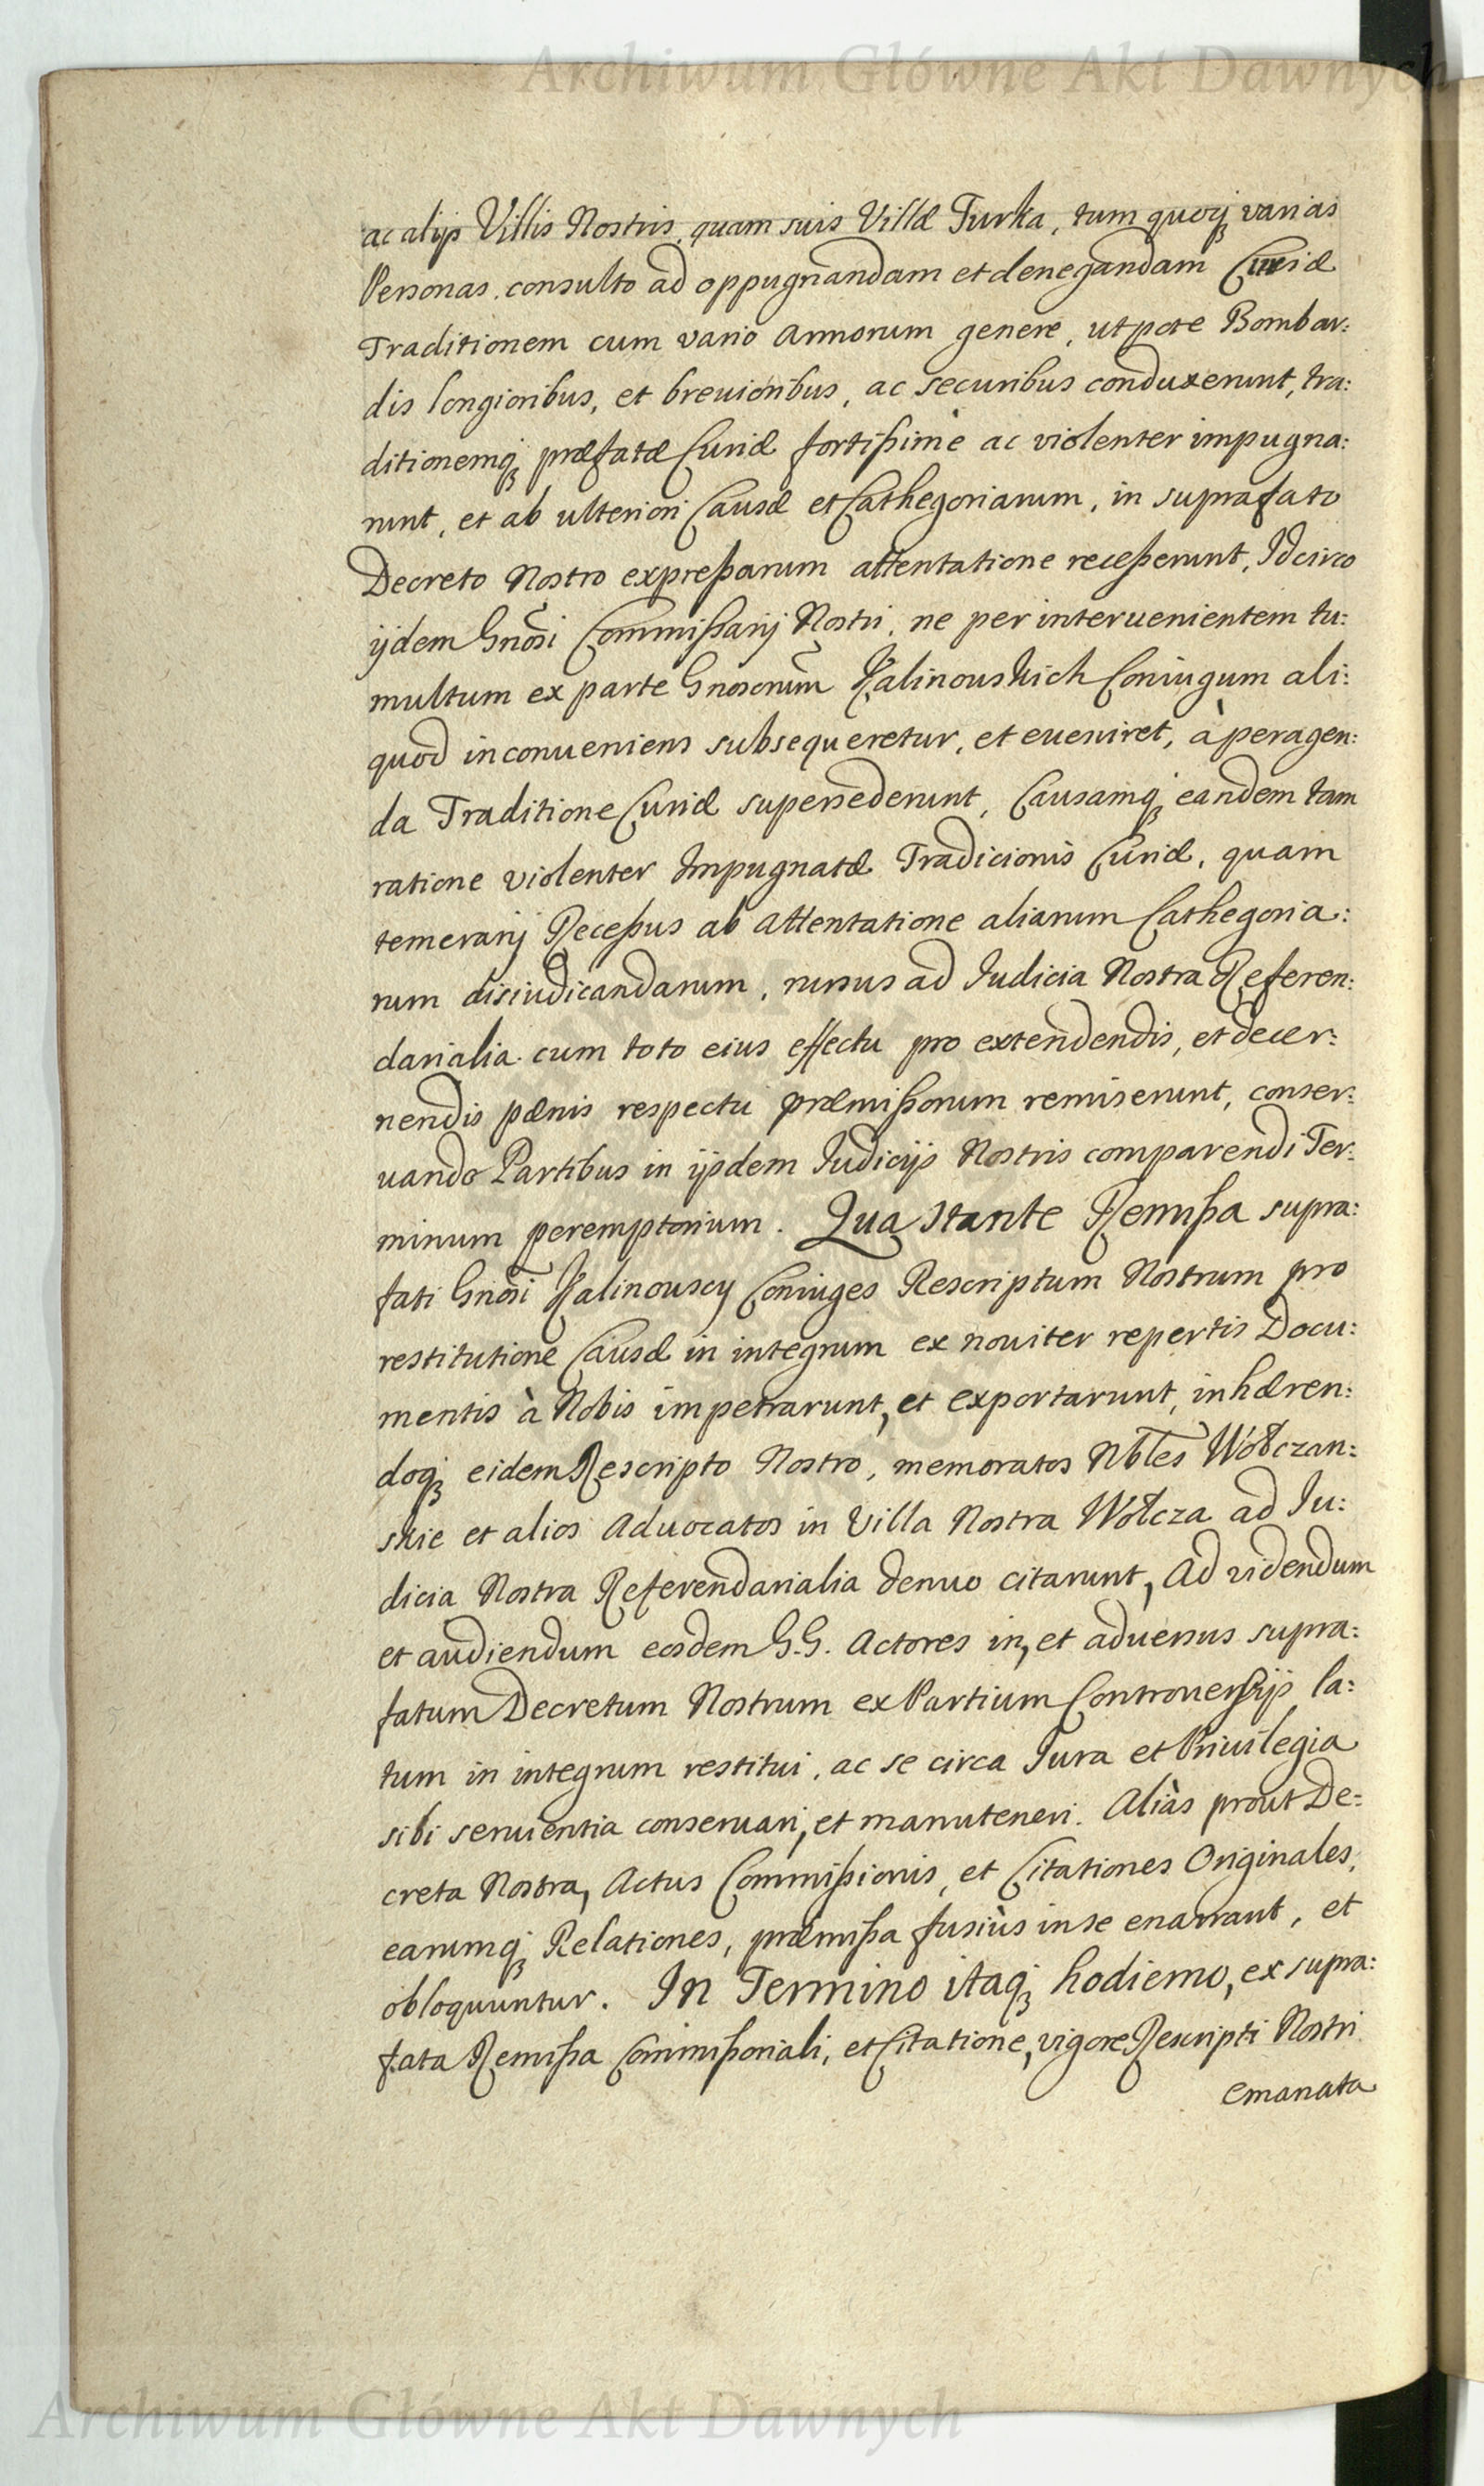 Archiwum Główne Akt Dawnych
ac alijs Villis Nostris, quam suis Villæ Turka, tum quoq varias
Personas consulto ad oppugnandam et denegandam Curiæ
Traditionem cum vario Armorum genere, utpote Bombar:
dis longioribus, et breuioribus, ac securibus conduxerunt, tra:
ditionemq præfatæ Curiæ fortißimè ac violenter impugna:
runt, et ab ulteriori Causæ et Cathegoriarum, in suprafato
Decreto Nostro expreßarum attentatione receßerunt, Idcirco
ijdem Gnosi Commißarij Nostri, ne per interuenientem tu:
multum ex parte Gnosorum Kalinouskich Coniugum ali:
quod inconueniens subsequeretur, et eueniret, à peragen:
da Traditione Curiæ supersederunt, Causamq eandem tam
ratione violenter Impugnatæ Tradicionis Curiæ, quam
temerarij Receßus ab attentatione aliarum Cathegoria:
rum disiudicandarum, rursus ad Iudicia Nostra Referen:
darialia cum toto eius effectu pro extendendis, et decer:
nendis pænis respectu præmißorum remiserunt, conser:
uando Partibus in ijsdem Iudicijs Nostris comparendi Ter:
minum peremptorium. Qua stante Remißa supra:
fati Gnosi Kalinouscy Coniuges Rescriptum Nostrum pro
restitutione Causæ in integrum ex nouiter repertis Docu:
mentis à Nobis impetrarunt, et exportarunt, inhæren:
doq eidem Rescripto Nostro, memoratos Nbles Wołczan:
skie et alios Aduocatos in Villa Nostra Wołcza ad Iu:
dicia Nostra Referendarialia denuo citarunt, Ad videndum
et audiendum eosdem G.G. Actores in, et aduersus supra:
fatum Decretum Nostrum ex Partium Controuersijs la:
tum in integrum restitui, ac se circa Iura et Priuilegia
sibi seruientia conseruari, et manuteneri. Aliàs prout De:
creta Nostra, Actus Commißionis, et Citationes Originales,
earumq Relationes, præmißa fusiùs in se enarrant, et
obloquuntur. In Termino itaq hodierno, ex supra:
fata Remißa Commißoriali, et Citatione, vigore Rescripti Nostri
emanata
Archiwum Główne Akt Dawnych